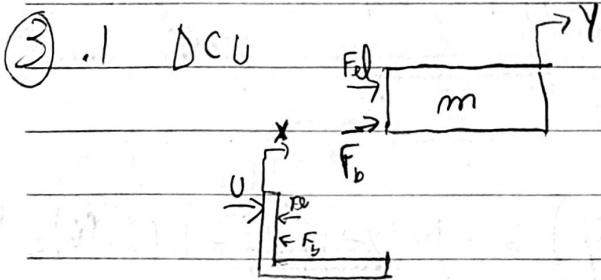 ③ .1 DCU
Y
Fel
m
F_b
X
U
Fel
F_b